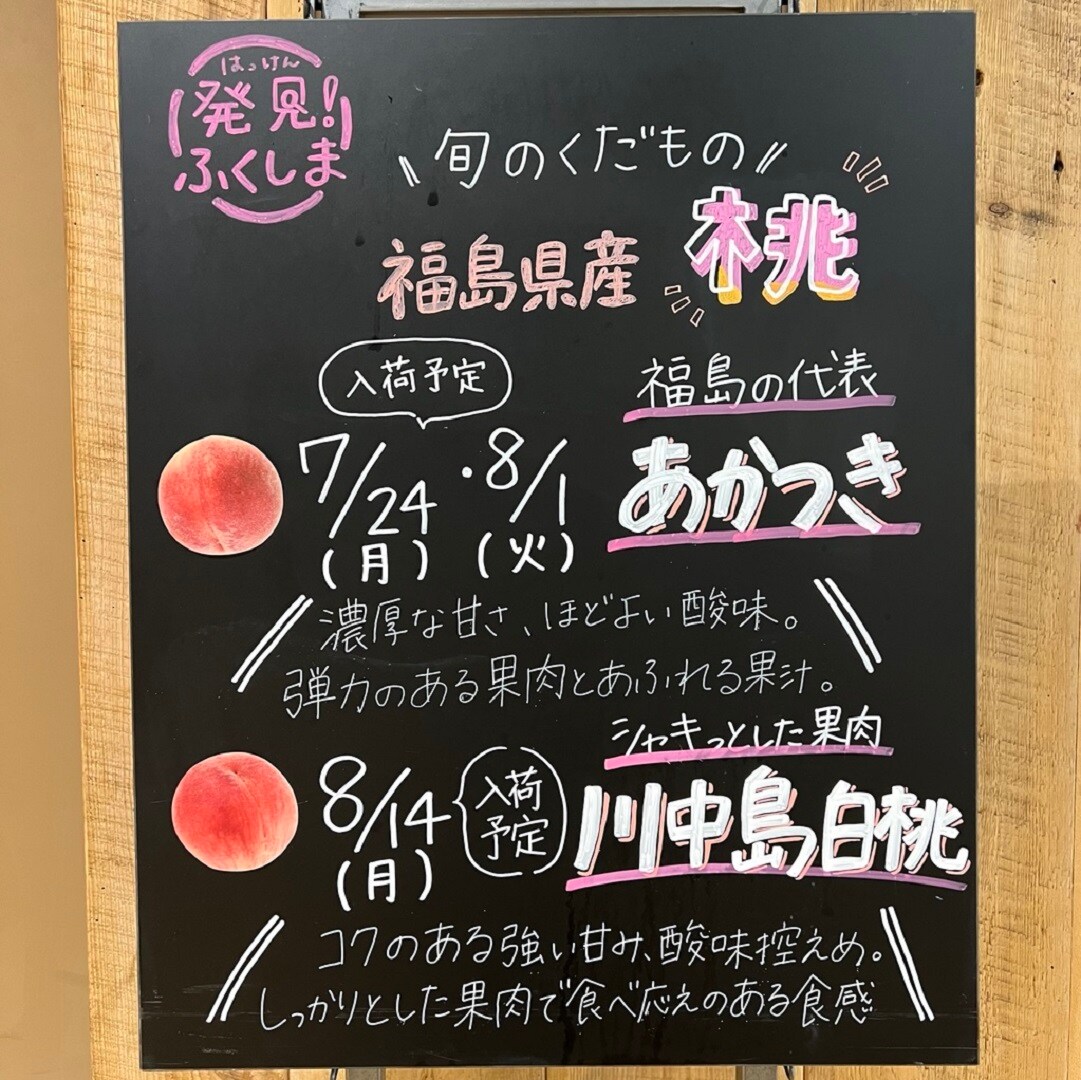 はっけん
発見！
ふくしま
旬のくだもの
福島県産 桃
入荷予定
7/24 ・ 8/1
(月) (火)
福島の代表
あかつき
濃厚な甘さ、ほどよい酸味。
弾力のある果肉とあふれる果汁。
シャキっとした果肉
川中島白桃
8/14
(月)
入荷
予定
コクのある強い甘み、酸味控えめ。
しっかりとした果肉で食べ応えのある食感